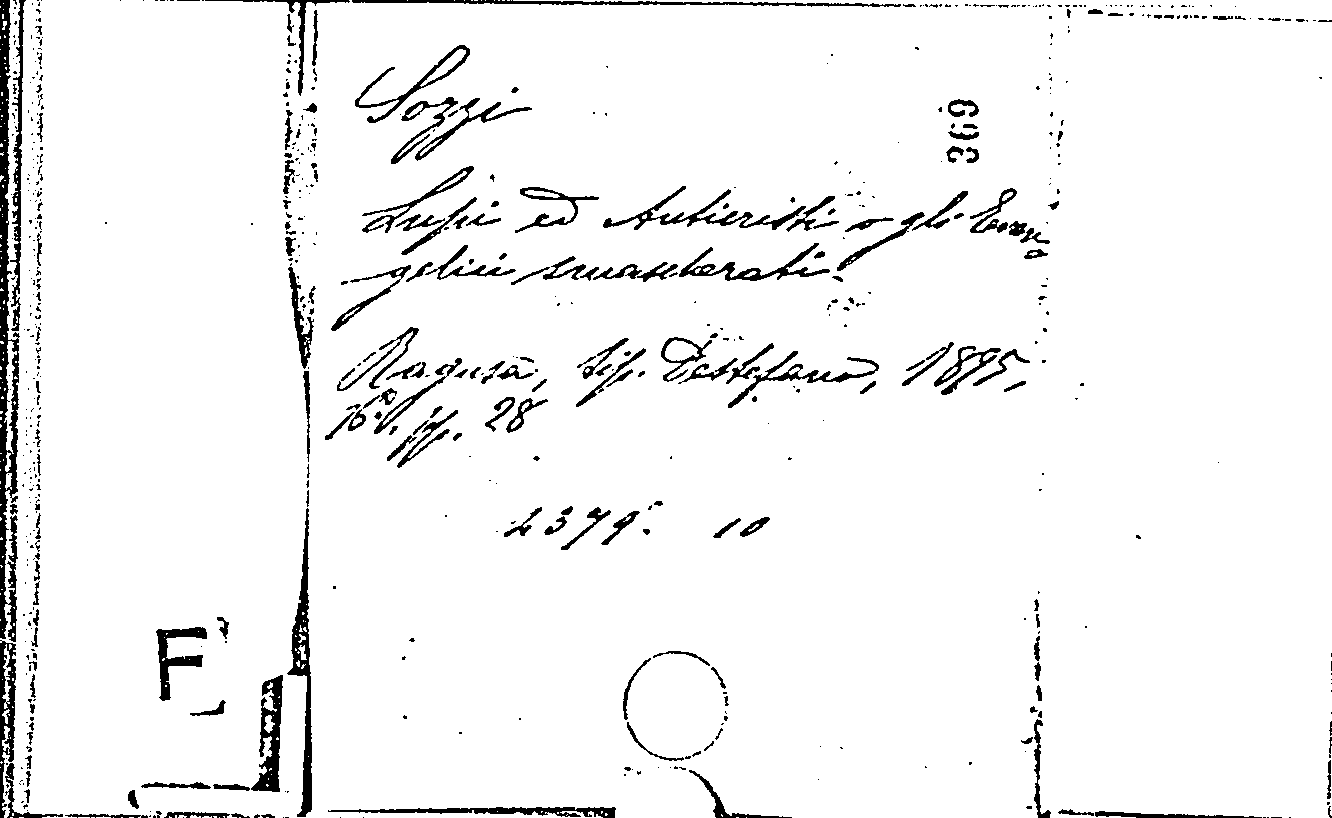 Sozzi
369
Lupi ed Anticristi o gli Evan
gelici smascherati.
Ragusa, tip. Destefano, 1895,
16.° pp. 28
2379. 10
F